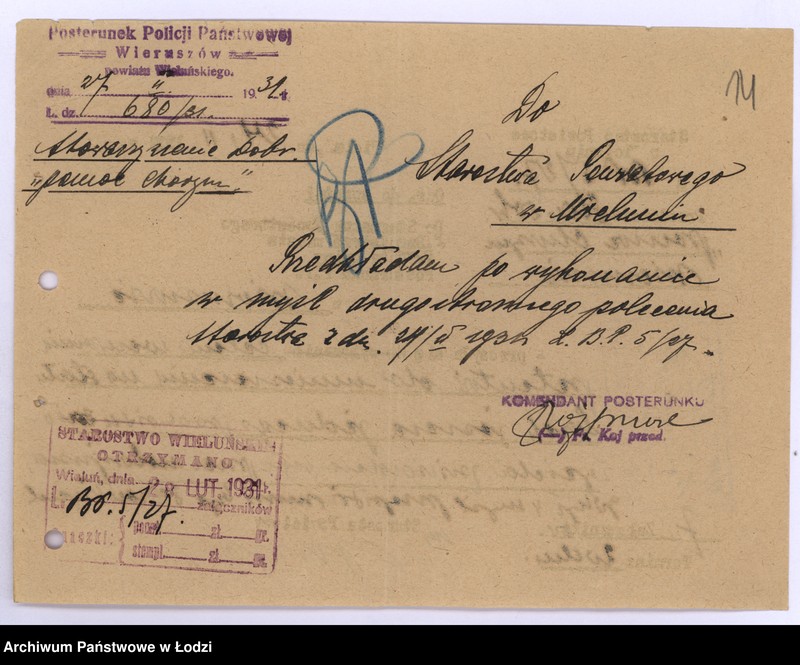 Posterunek Policji Państwowej
Wieruszów
powiatu Wieluńskiego.
dnia 27 II 1931 r.
L. dz. 680/31.
Stowarzyszenie Dobr.
"pomoc chorym"
14
Do
Starostwa Powiatowego
w Wieluniu
Przedkładam po wykonaniu
w myśl drugostronnego polecenia
Starostwa z dn. 24/II 1931 L. B.P. 5/27.
KOMENDANT POSTERUNKU
(—) Fr. Kaj przod.
STAROSTWO WIELUŃSKIE
OTRZYMANO
Wieluń, dnia LUT 1931 r.
L. BP. 5/27. załączników
poczt. zł. gr.
stempl. zł. gr.
Archiwum Państwowe w Łodzi